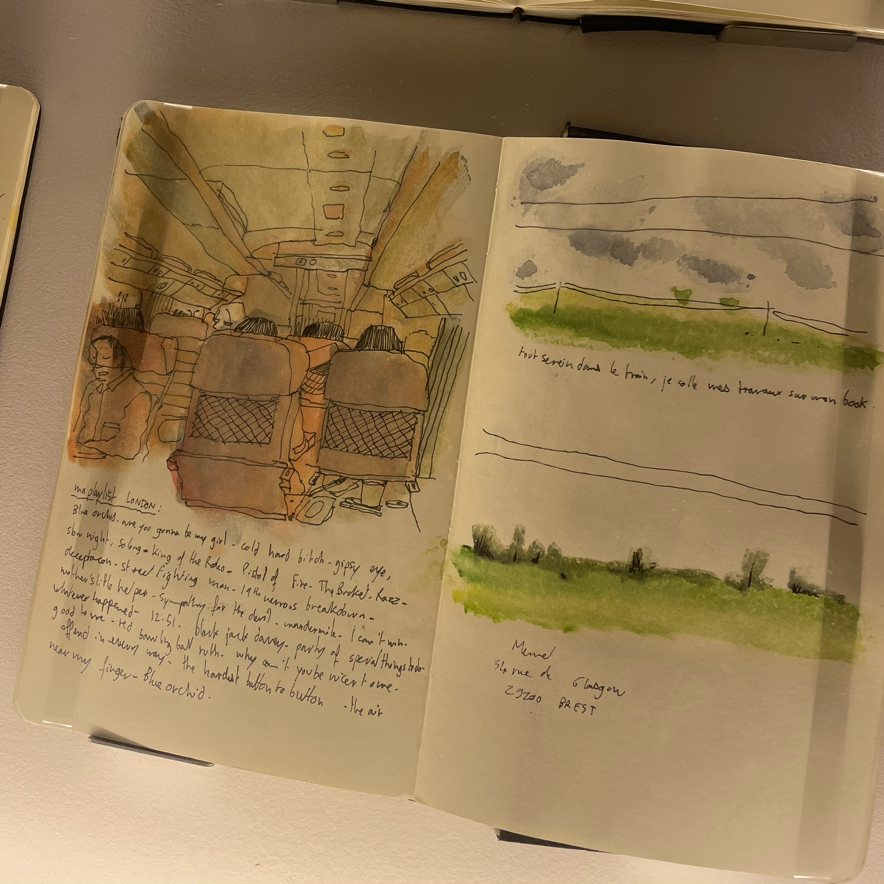 ma playlist LONDON:
Blue orchid. are you gonna be my girl - cold hard bitch - gipsy eye,
slow night, so long - king of the Rodeo - Pistol of Fire - The Bucket - Razz -
deceptacon - street fighting man - 19th nervous breakdown -
mother's little helper - sympathy for the devil - I can't win -
whatever happened - 12:51 - black jack davey - party of special things to do -
good to me - red bowling ball ruth - why can't you be nicer to me -
offend in every way - the hardest button to button - the air
near my finger - Blue orchid.
tout serein dans le train, je colle mes travaux sur mon book.
34 rue de Glasgow
29200 BREST